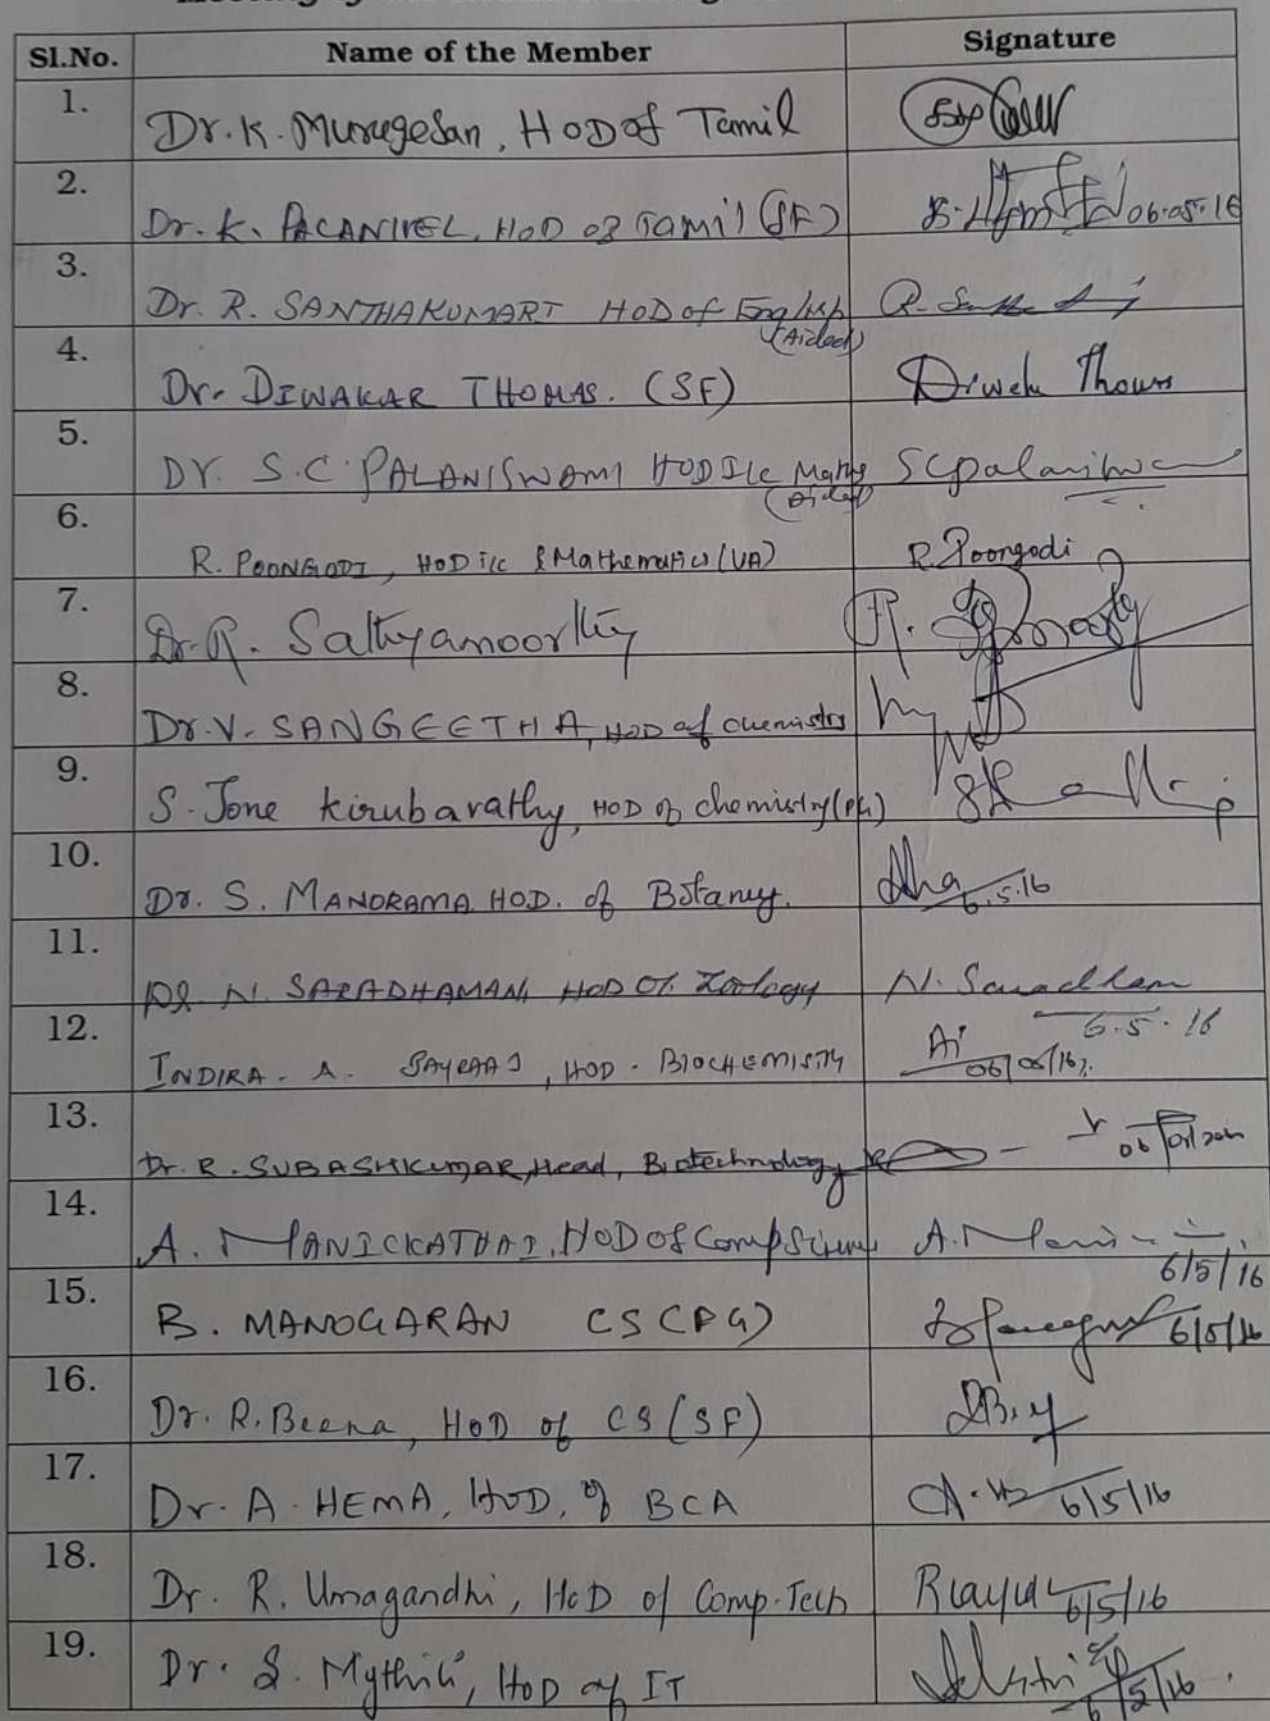 Sl.No. Name of the Member Signature
1. Dr. K. Murugesan, HOD of Tamil
2. Dr. K. PALANIVEL, HOD of Tamil (SF) 06.05.16
3. Dr. R. SANTHAKUMARI HOD of English
(Aided)
4. Dr. DIWAKAR THOMAS. (SF) Diwak Thomas
5. Dr. S.C. PALANISWAMI HOD I/c Maths SCpalanisw
(Aided)
6. R. POONGODI, HOD i/c of Mathematics (UA) R. Poongodi
7. Dr. R. Sathyamoorthy
8. Dr. V. SANGEETHA, HOD of Chemistry
9. S. Jone Kirubavathy, HOD of Chemistry (PG)
10. Dr. S. MANORAMA HOD. of Botany. 6.5.16
11. Dr. N. SARADHAMANI HOD Of Zoology N. Saradham
6.5.16
12. INDIRA. A. JAYRAAJ, HOD. BIOCHEMISTRY 06/05/16
13. Dr. R. SUBASHKUMAR, Head, Biotechnology
14. A. MANICKATHAI, HOD of Comp Science A. Mani
6/5/16
15. B. MANOGARAN CS (PG) 6/5/16
16. Dr. R. Beena, HOD of CS (SF)
17. Dr. A. HEMA, HOD. of BCA 6/5/16
18. Dr. R. Umagandhi, HOD of Comp. Tech 6/5/16
19. Dr. S. Mythili, HOD of IT 6/5/16